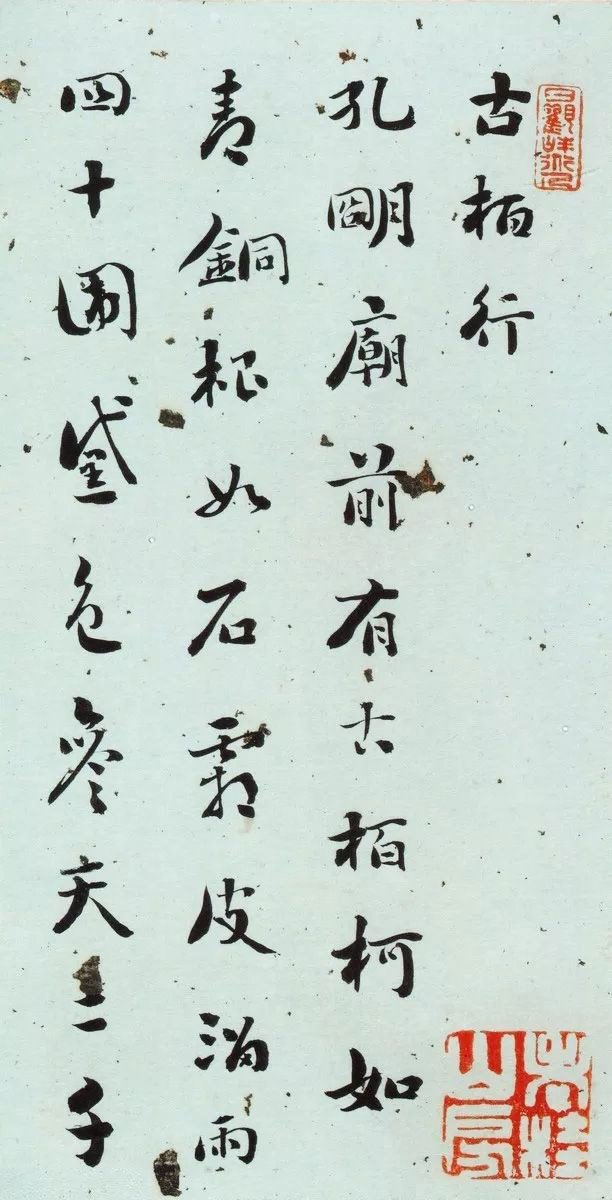 古柏行
孔明廟前有古栢柯如
青銅根如石霜皮溜雨
四十圍黛色參天二千